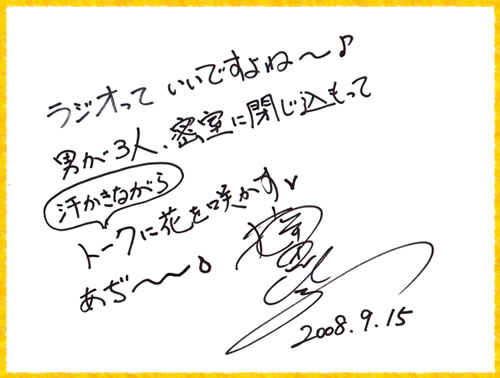 ラジオって いいですよね〜♪
男が3人、密室に閉じ込もって
汗かきながら
トークに花を咲かす♥
あぢ〜〜♪
2008.9.15